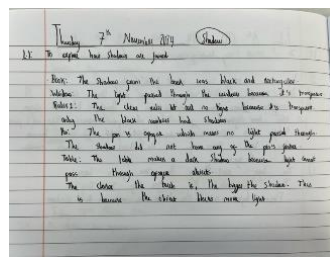 Thursday 7th November 2024 Shadows
L.I. To explore how shadows are formed
Book: The shadow from the book was black and rectangular.
Window: The light passed through the window because it's transparent
Ruler: The clear ruler let all no light because it's transparent
only the black numbers had shadows
Pen: The pen is opaque which means no light passed through.
The shadow did not have any of the pen's
Table: The table makes a dark shadow because light cannot
pass through opaque objects.
The closer the book is, the bigger the shadow. This
is because the blocks more light